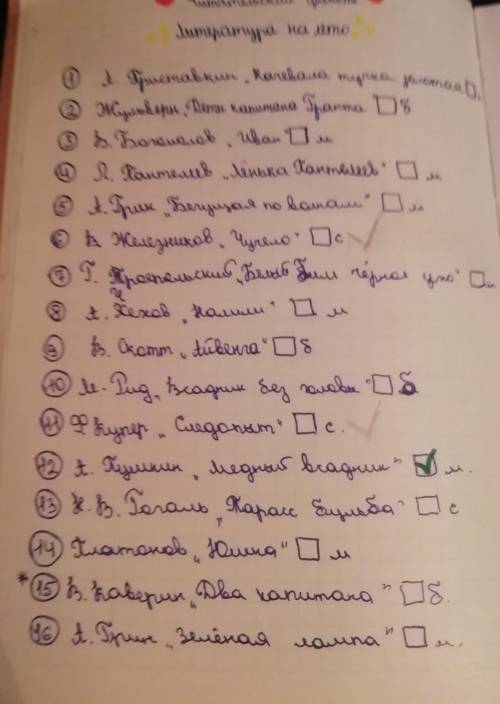 Литература на лето
1 А. Приставкин „Ночевала тучка золотая
2 Жуль Верн „Дети капитана Гранта □ б
3 В. Богомолов „Иван" □ м
4 Л. Пантелеев „Лёнька Пантелеев" □ м
5 А. Грин „Бегущая по волнам" □ м
6 В. Железников „Чучело" □ с
7 Г. Троепольский „Белый Бим чёрное ухо" □
8 А. Чехов „Налим" □ м
9 В. Скотт „Айвенго" □ б
10 М. Рид „Всадник без головы" □ б
11 Ф Купер „Следопыт" □ с.
12 А. Пушкин „Медный всадник" ☑ м.
13 Н. В. Гоголь „Тарасс Бульба" □ с
14 Платонов „Юшка" □ м
*15 В. Каверин „Два капитана" □ б.
16 А. Грин „Зелёная лампа" □ м.